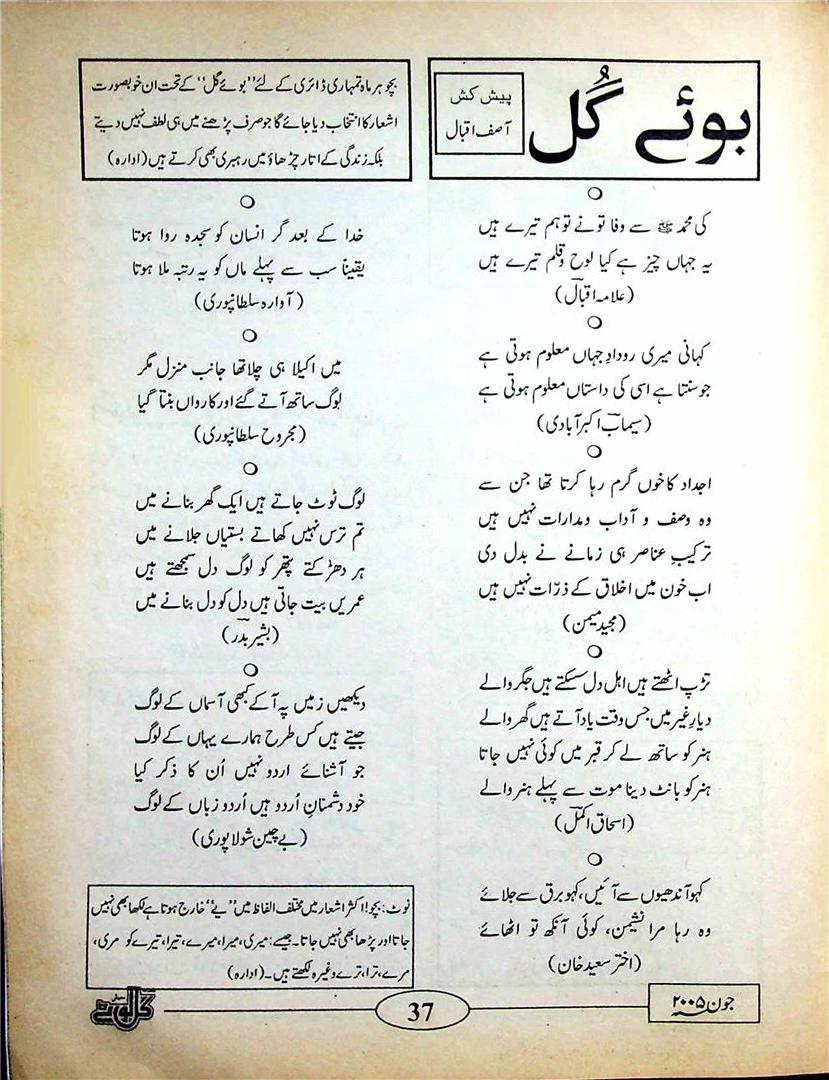 بوئے گُل
پیش کش
آصف اقبال
بچو ہر ماہ تمہاری ڈائری کے لئے ”بوئے گل“ کے تحت ان خوبصورت
اشعار کا انتخاب دیا جائے گا جو صرف پڑھنے میں ہی لطف نہیں دیتے
بلکہ زندگی کے اتار چڑھاؤ میں رہبری بھی کرتے ہیں (ادارہ)
کی محمد ﷺ سے وفا تو نے تو ہم تیرے ہیں
یہ جہاں چیز ہے کیا لوح و قلم تیرے ہیں
(علامہ اقبالؔ)
کہانی میری رودادِ جہاں معلوم ہوتی ہے
جو سنتا ہے اسی کی داستاں معلوم ہوتی ہے
(سیمابؔ اکبر آبادی)
اجداد کا خوں گرم رہا کرتا تھا جن سے
وہ وصف و آداب و مدارات نہیں ہیں
ترکیبِ عناصر ہی زمانے نے بدل دی
اب خون میں اخلاق کے ذرّات نہیں ہیں
(مجید میمن)
تڑپ اٹھتے ہیں اہل دل سسکتے ہیں جگر والے
دیارِ غیر میں جس وقت یاد آتے ہیں گھر والے
ہنر کو ساتھ لے کر قبر میں کوئی نہیں جاتا
ہنر کو بانٹ دینا موت سے پہلے ہنر والے
(اسحاق اکملؔ)
کہو آندھیوں سے آئیں، کہو برق سے جلائے
وہ رہا مرا نشیمن، کوئی آنکھ تو اٹھائے
(اختر سعید خان)
خدا کے بعد گر انسان کو سجدہ روا ہوتا
یقیناً سب سے پہلے ماں کو یہ رتبہ ملا ہوتا
(آوارہ سلطانپوری)
میں اکیلا ہی چلا تھا جانب منزل مگر
لوگ ساتھ آتے گئے اور کارواں بنتا گیا
(مجروح سلطانپوری)
لوگ ٹوٹ جاتے ہیں ایک گھر بنانے میں
تم ترس نہیں کھاتے بستیاں جلانے میں
ہر دھڑکتے پتھر کو لوگ دل سمجھتے ہیں
عمریں بیت جاتی ہیں دل کو دل بنانے میں
(بشیر بدرؔ)
دیکھیں زمیں پہ آ کے کبھی آسماں کے لوگ
جیتے ہیں کس طرح ہمارے یہاں کے لوگ
جو آشنائے اردو نہیں اُن کا ذکر کیا
خود دشمنانِ اُردو ہیں اُردو زباں کے لوگ
(بے چین شولاپوری)
نوٹ: بچو! اکثر اشعار میں مختلف الفاظ میں ”یے“ خارج ہوتا ہے لکھا بھی نہیں
جاتا اور پڑھا بھی نہیں جاتا۔ جیسے: میری، میرا، میرے، تیرا، تیرے کو مری،
مرے، ترا، ترے وغیرہ لکھتے ہیں۔ (ادارہ)
گل بوٹے
37
جون ۲۰۰۵